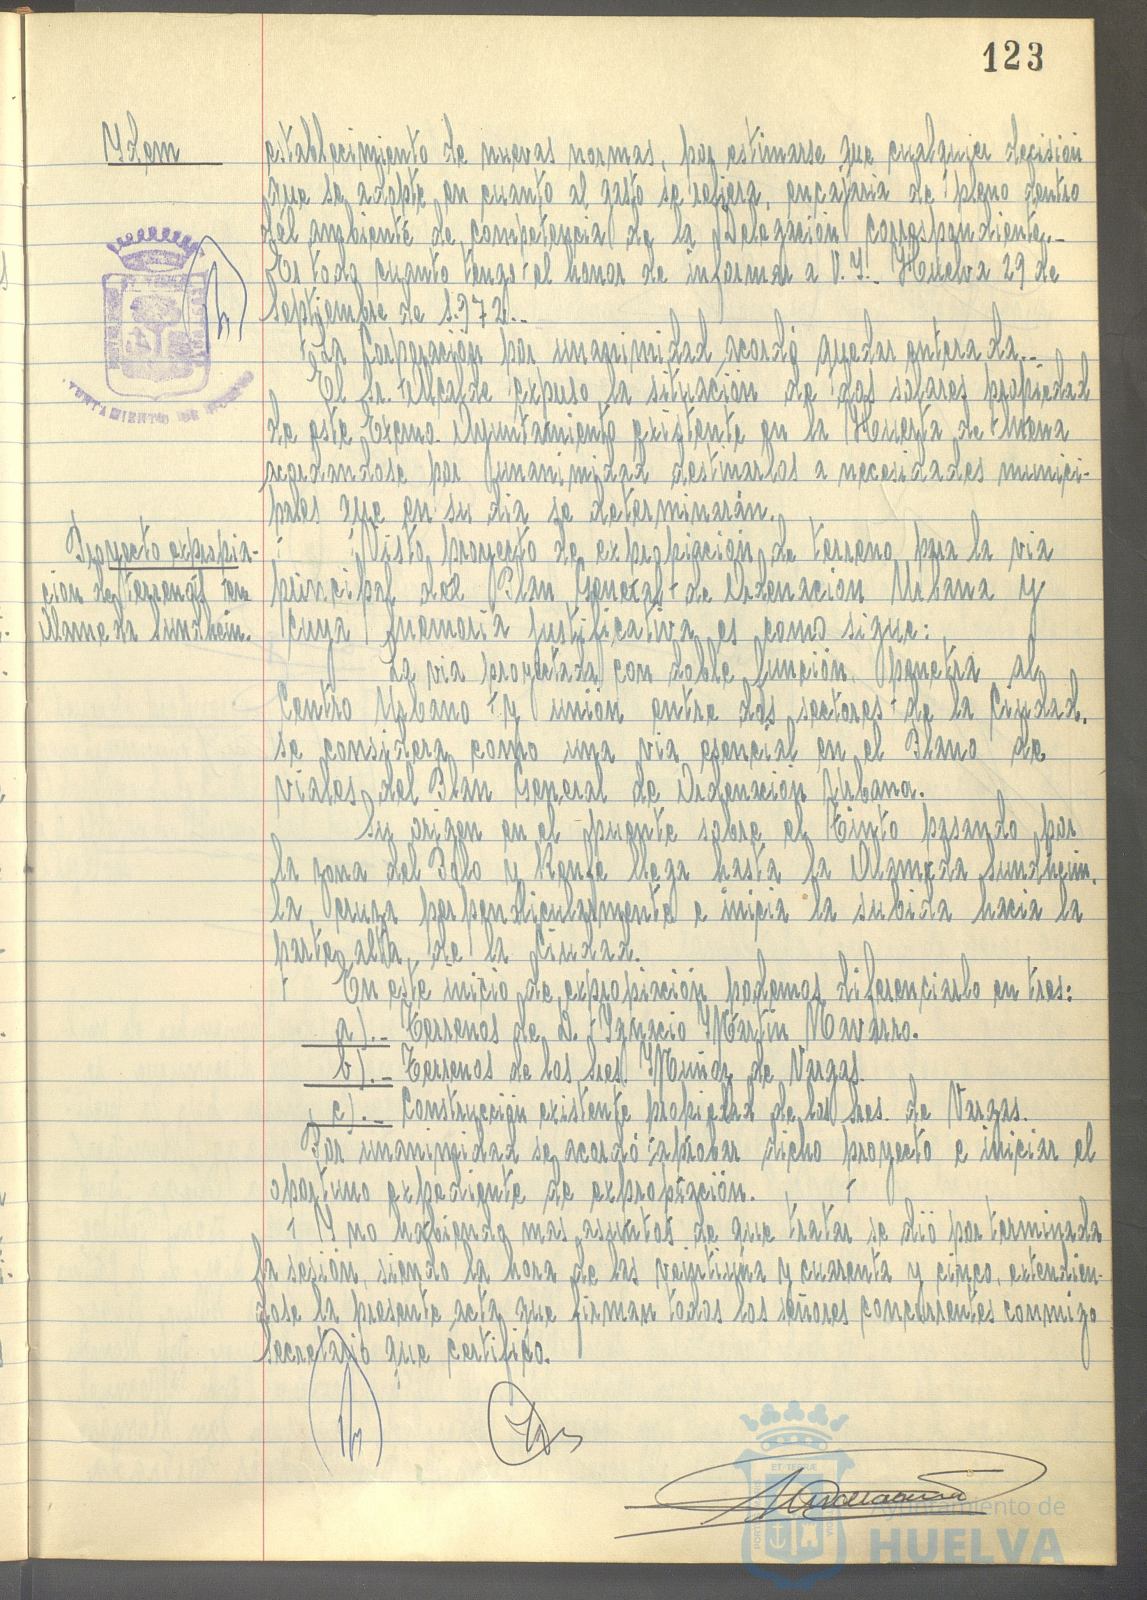 123
Idem
establecimiento de nuevas normas, por estimarse que cualquier decisión
que se adopte en cuanto al gasto se refiera, encajaria de pleno dentro
del ambiente de competencia de la Delegación correspondiente.-
Es todo cuanto tengo el honor de informar a V.I. Huelva 29 de
Septiembre de 1.972.-
La Corporación por unanimidad acordó quedar enterada.-
El Sr. Alcalde expuso la situación de dos solares propiedad
de este Excmo. Ayuntamiento existente en la Huerta de Mena
acordandose por unanimidad destinarlos a necesidades munici-
pales que en su dia se determinarán.
Proyecto expropia-
cion de terrenos en
Alameda Sundhein.
Visto proyecto de expropiación de terreno para la via
principal del Plan General de Ordenación Urbana y
cuya memoria justificativa es como sigue:
La via proyectada con doble función, penetra al
Centro Urbano y unión entre dos sectores de la Ciudad,
se considera como una via esencial en el Plano de
viales del Plan General de Ordenación Urbana.
Su origen en el puente sobre el Tinto pasando por
la zona del Polo y Renfe llega hasta la Alameda Sundheim,
la cruza perpendicularmente e inicia la subida hacia la
parte alta, de la Ciudad.
En este inicio de expropiación podemos diferenciarlo en tres:
a).- Terrenos de D. Ignacio Martín Navarro.
b).- Terrenos de los Sres. Muñoz de Vargas.
c).- Construcción existente propiedad de los Sres. de Vargas.
Por unanimidad se acordó aprobar dicho proyecto e iniciar el
oportuno expediente de expropiación.
Y no habiendo mas asuntos de que tratar se dió por terminada
la sesión, siendo la hora de las veintiuna y cuarenta y cinco, extendien-
dose la presente acta que firman todos los señores concurrentes conmigo
Secretario que certifico.
Ayuntamiento de
HUELVA